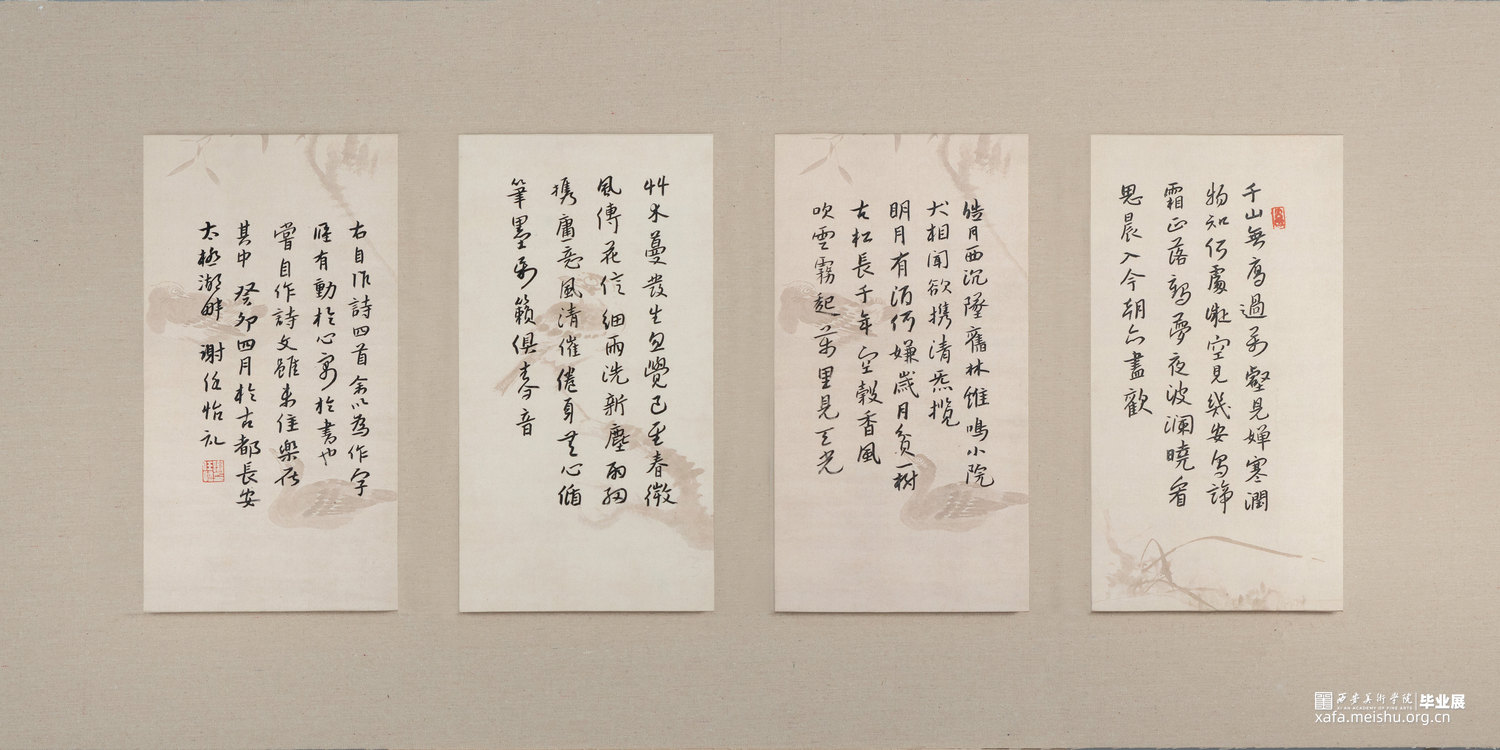 千山無 過 壑見嬋寒潤
物知何處 空見幾安
霜正落 夢夜波瀾曉看
思晨入今朝 盡歡
皓月西沉墜舊林雖鳴小院
犬相聞欲攜清 攬
明月有酒何嫌歲月貧一樹
古松長千年空穀香風
吹雲霧起萬里見天光
艸木蔓發生忽覺已至春微
風傳花信細雨洗新塵
攜 意風清催倦身 心
筆墨 籟俱 音
右自作詩四首余以為作字
應有動於心寫於書也
嘗自作詩文雖未佳樂在
其中 癸卯四月於古都長安
太極湖畔 謝 怡
西安美術學院
XI'AN ACADEMY OF FINE ARTS
毕业展
xafa.meishu.org.cn